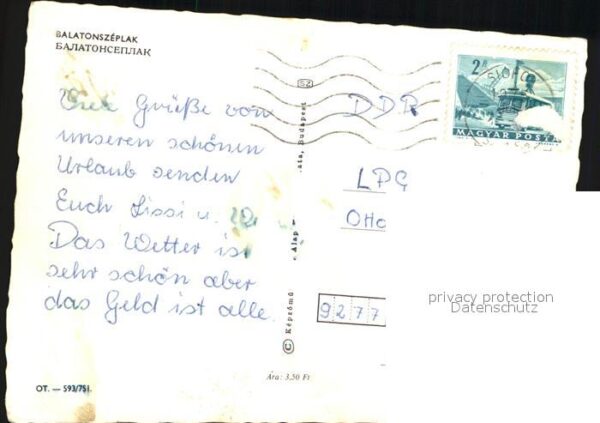 BALATONSZÉPLAK
БАЛАТОНСЕПЛАК
Viele Grüße von
unseren schönen
Urlaub senden
Euch Sissi u.
Das Wetter ist
sehr schön aber
das Geld ist alle.
OT. — 593/751.
Ára: 3,50 Ft
© Képzőmű
Alap
Budapest
2
SIÓFOK
MAGYAR POSTA
DDR
LPG
Otto
9277
privacy protection
Datenschutz